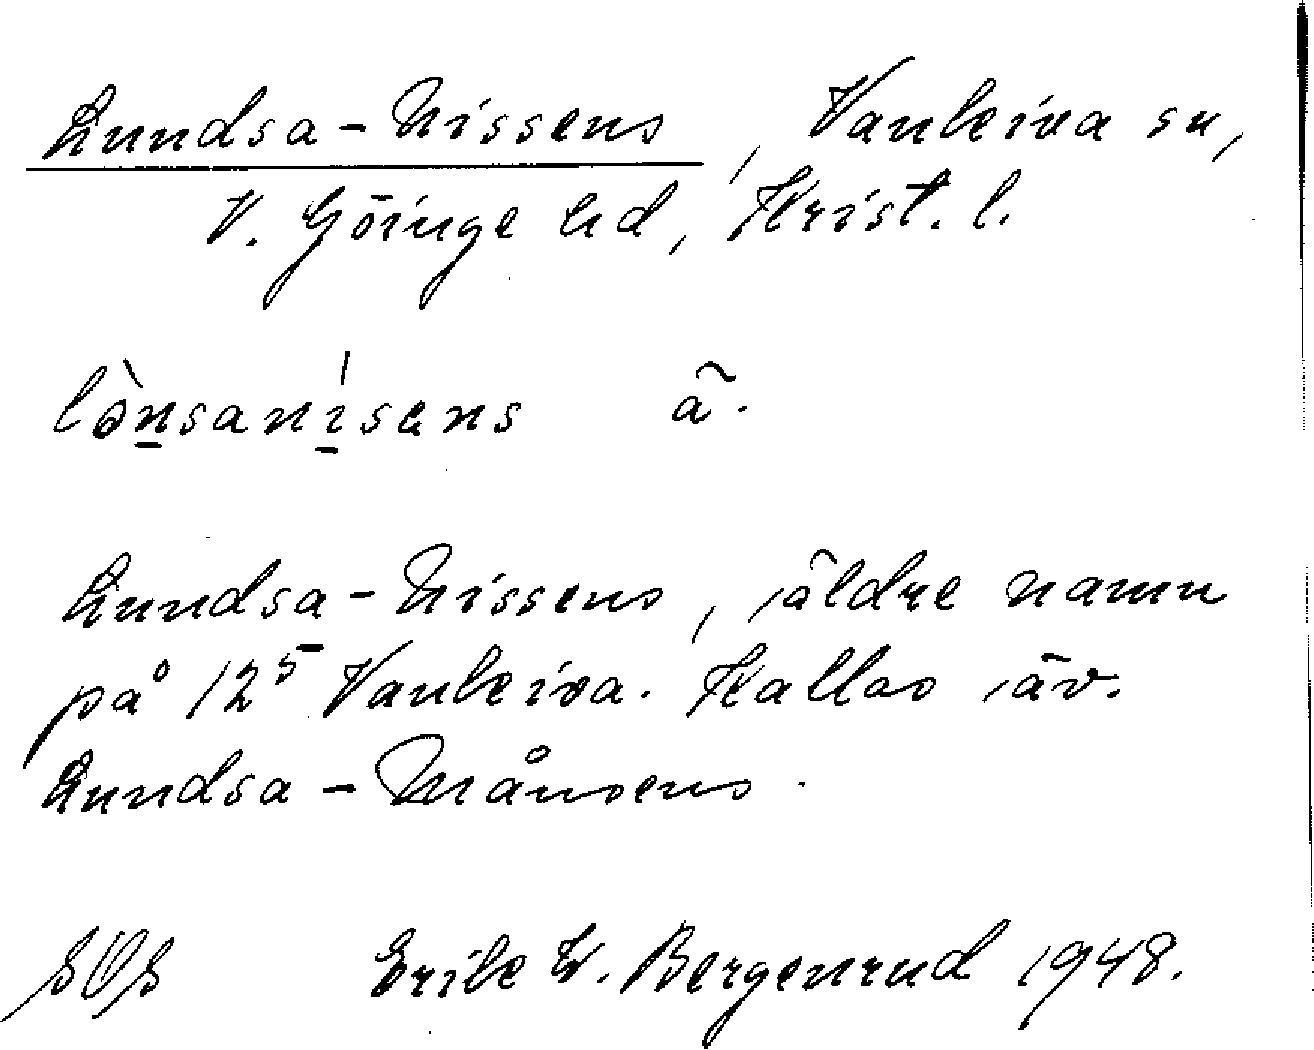 Lundsa-Nissens, Vankiva sn,
V. Göinge hd, Krist. l.
lònsanísens ä.
Lundsa-Nissens, äldre namn
på 12⁵ Vankiva. Kallas äv.
Lundsa-Månsens.
Erik W. Bergenrud 1948.